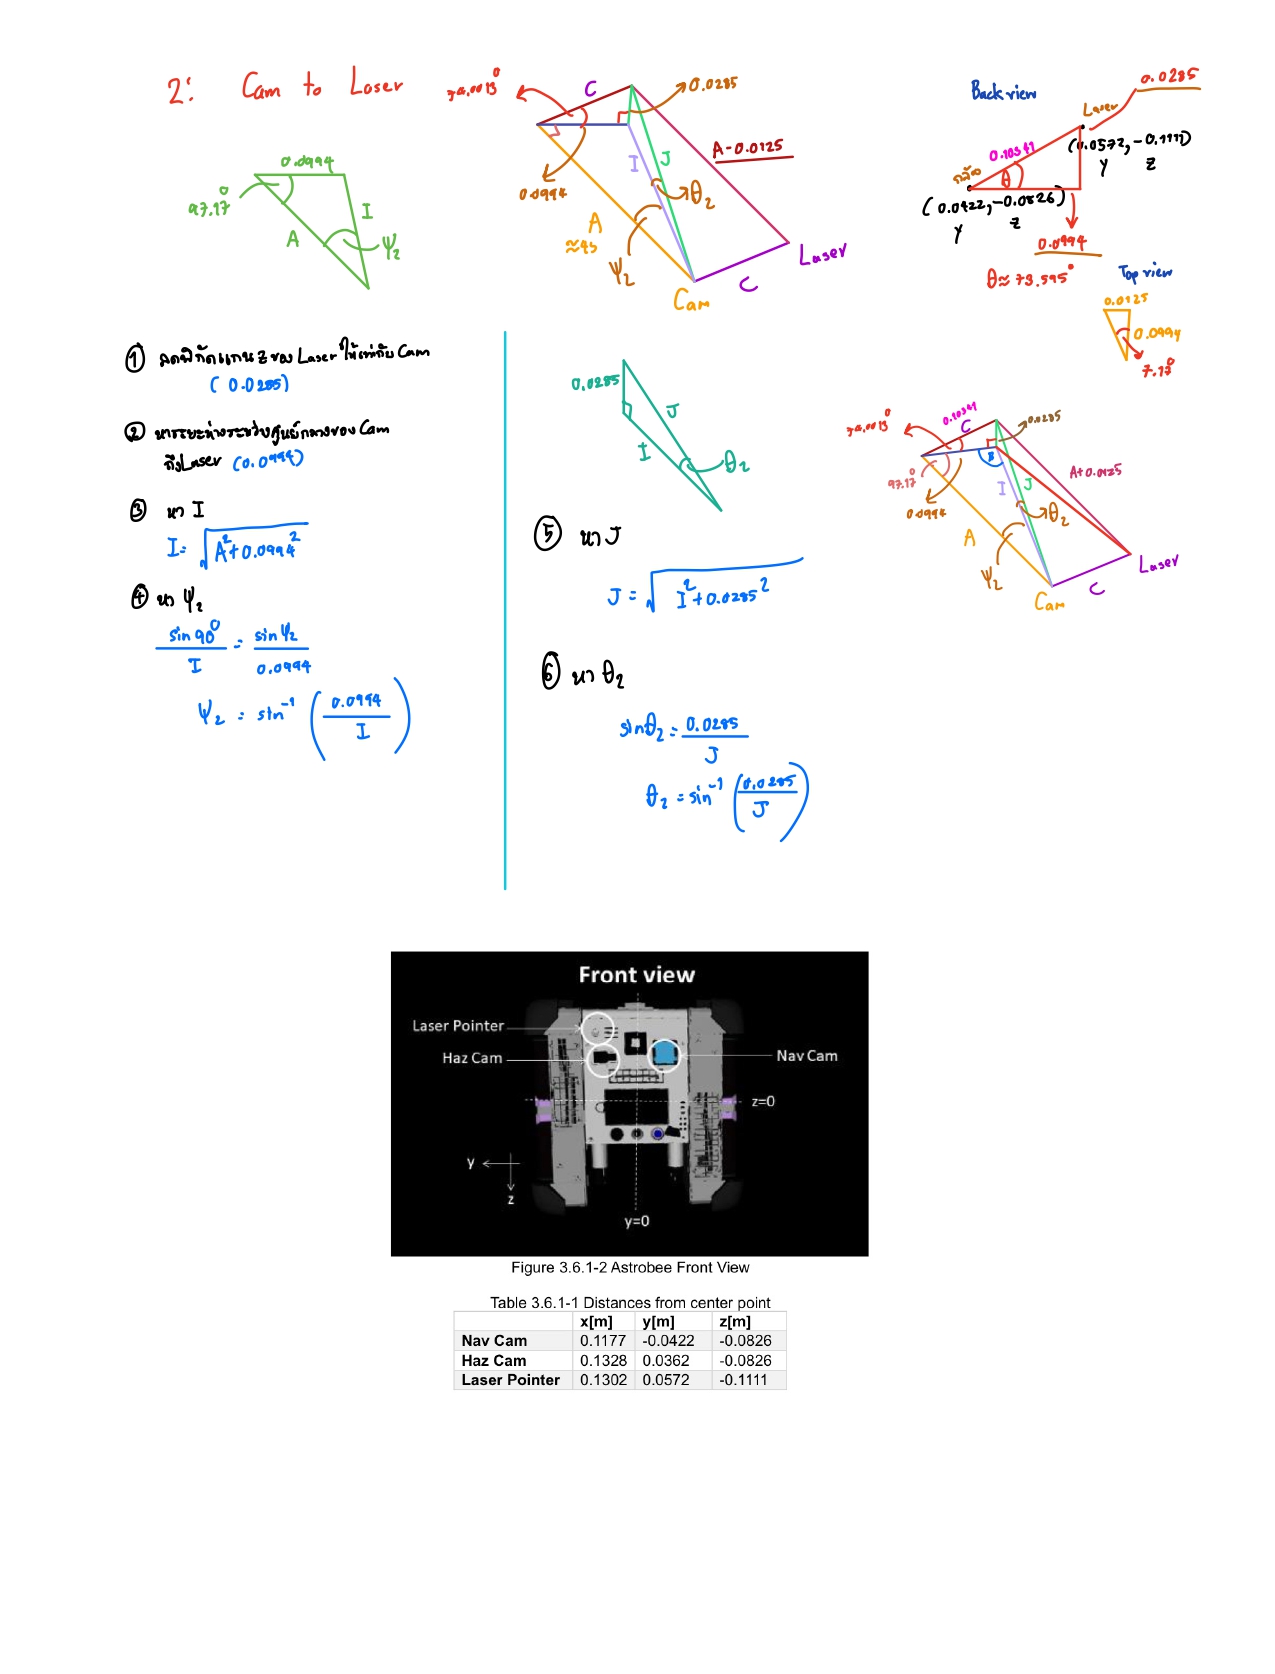 2: Cam to Laser
C
0.0285
A-0.0125
I
J
θ₂
0.0994
A
≈45
ψ₂
Cam
C
Laser
0.0994
97.17°
A
I
ψ₂
Back view
0.0285
Laser
0.10341
(0.0572, -0.1111)
Y Z
กล้อง
θ
(0.0422, -0.0826)
Y Z
0.0994
θ≈73.595°
Top view
0.0125
0.0994
7.17°
① ลดพิกัดแกน z ของ Laser ให้เท่ากับ Cam
(0.0285)
② หาระยะห่างระหว่างศูนย์กลางของ Cam
ถึง Laser (0.0994)
③ หา I
I = √A²+0.0994²
④ หา ψ₂
sin 90° / I = sin ψ₂ / 0.0994
ψ₂ = sin⁻¹ (0.0994 / I)
0.0285
J
I
θ₂
⑤ หา J
J = √I²+0.0285²
⑥ หา θ₂
sinθ₂ = 0.0285 / J
θ₂ = sin⁻¹ (0.0285 / J)
0.10341
C
0.0285
97.17°
B
A+0.0125
0.0994
I
J
θ₂
A
ψ₂
Cam
C
Laser
Front view
Laser Pointer
Haz Cam
Nav Cam
z=0
y
z
y=0
Figure 3.6.1-2 Astrobee Front View
Table 3.6.1-1 Distances from center point
x[m] y[m] z[m]
Nav Cam 0.1177 -0.0422 -0.0826
Haz Cam 0.1328 0.0362 -0.0826
Laser Pointer 0.1302 0.0572 -0.1111